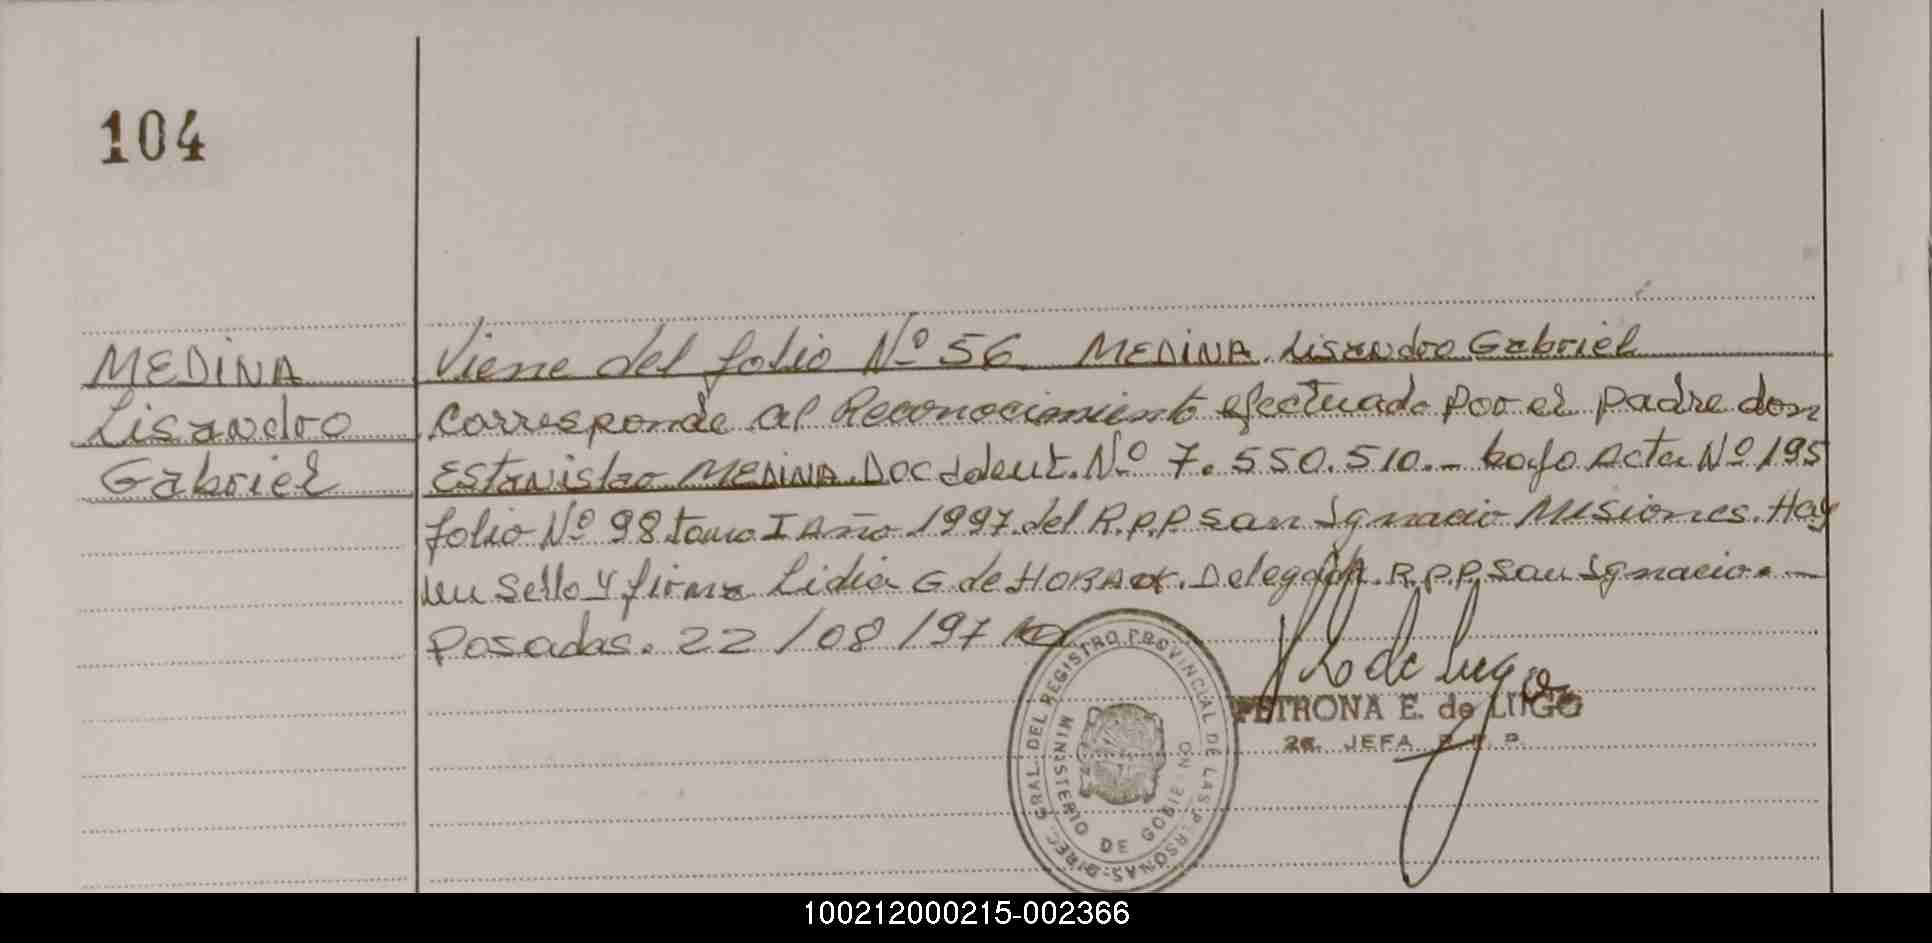 104
MEDINA
Lisandro
Gabriel
Viene del folio Nº 56 MEDINA Lisandro Gabriel
corresponde al Reconocimiento efectuado por el padre don
Estanislao MEDINA Doc Ident. Nº 7.550.510.- bajo Acta Nº 195
folio Nº 98 tomo I Año 1997 del R.P.P San Ignacio Misiones. Hay
un sello y firma Lidia G de Delegada R.P.P. San Ignacio.-
Posadas. 22/08/97
DIREC. GRAL. DEL REGISTRO PROVINCIAL DE LAS PERSONAS
MINISTERIO DE GOBIERNO
PETRONA E. de LUGO
2a. JEFA R.P.P.
100212000215-002366